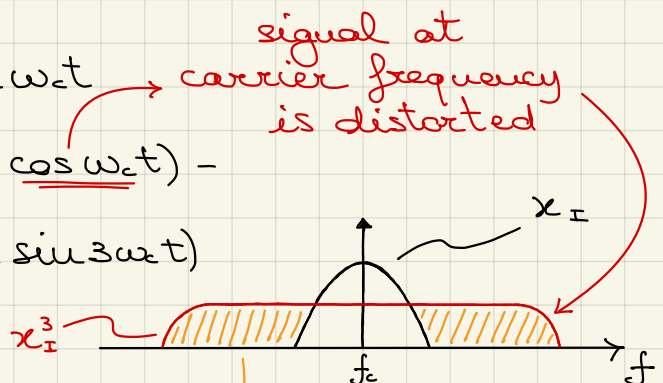 signal at
ω_c t
carrier frequency
is distorted
cos ω_c t) –
x_I
sin 3ω_c t)
x_I^3
f_c
f